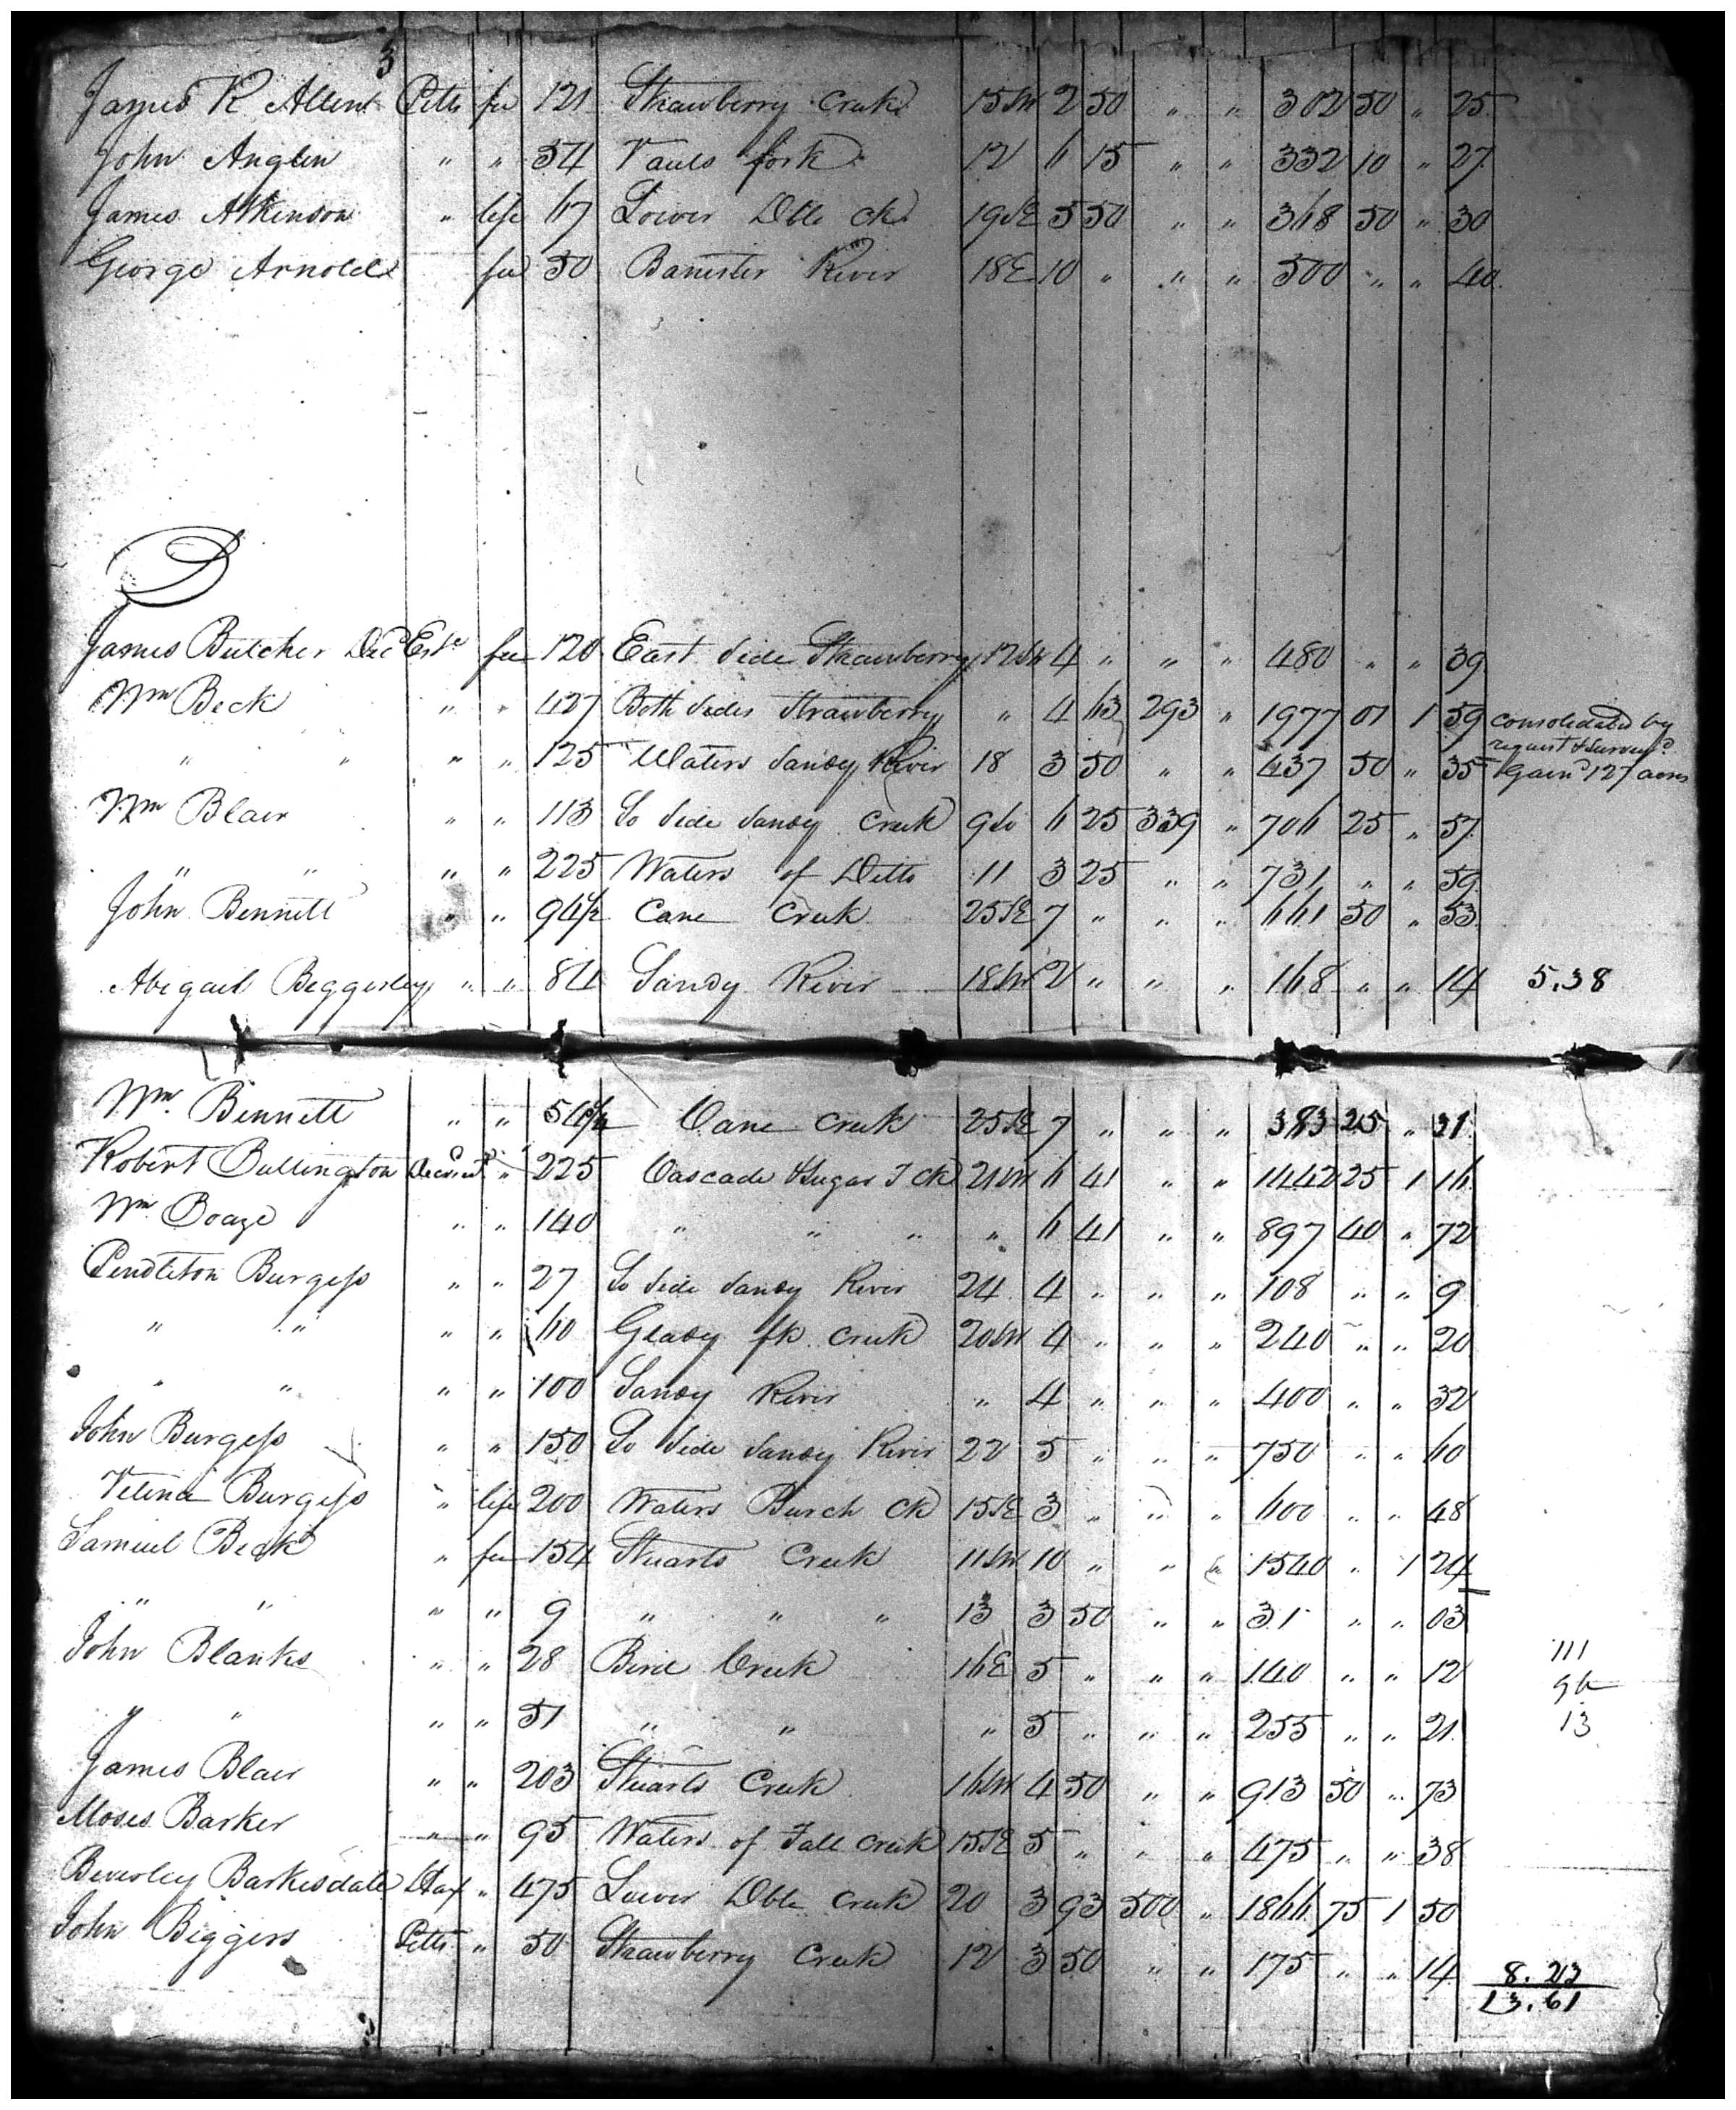 3
James R Allen Pitts fee 121 Strawberry Creek 15 SW 2 50 " " 302 50 " 25
John Anglin " " 54 Vauls fork 12 6 15 " " 332 10 " 27
James Atkinson " life 67 Lower Dble ck 19 SE 5 50 " " 368 50 " 30
George Arnold fee 50 Banister River 18 E 10 " " " 500 " " 40
B
James Butcher Decd Este fee 120 East Side Strawberry 12 SW 4 " " " 480 " " 39
Wm Beck " " 427 Both sides Strawberry " 4 63 293 " 1977 01 1 59 consolidated by
request & survey
" " " " 125 Waters Sandy River 18 3 50 " " 437 50 " 35 Gaind 127 acres
Wm Blair " " 113 So Side Sandy Creek 9 So 6 25 339 " 706 25 " 57
" " " " 225 Waters of Ditto 11 3 25 " " 731 " " 59
John Bennett " " 94½ Cane Creek 25 SE 7 " " " 661 50 " 53
Abigail Beggerley " " 84 Sandy River 18 SW 2 " " " 168 " " 14 5.38
Wm Bennett " " 54½ Cane Creek 25 SE 7 " " " 383 25 " 31
Robert Bullington " 225 Cascade & Sugar T ck 21 SW 6 41 " " 1442 25 1 16
Wm Boaze " " 140 " " " " 6 41 " " 897 40 " 72
Pendleton Burgess " " 27 So Side Sandy River 24 4 " " " 108 " " 9
" " " " 60 Glady fk creek 20 SW 4 " " " 240 " " 20
" " " " 100 Sandy River " 4 " " " 400 " " 32
John Burgess " " 150 So Side Sandy River 22 5 " " " 750 " " 60
Burgess " life 200 Waters Burch ck 15 SE 3 " " " 600 " " 48
Samuel Beck " fee 154 Stuarts Creek 11 SW 10 " " 1540 " 1 24
" " " " 9 " " " 13 3 50 " " 31 " " 03
John Blanks " " 28 Bird Creek 16 E 5 " " " 140 " " 12
111
96
" " " " 51 " " " 5 " " " 255 " " 21 13
James Blair " " 203 Stuarts Creek 16 SW 4 50 " " 913 50 " 73
Moses Barker " " 95 Waters of Fall Creek 15 SE 5 " " " 475 " " 38
Beverley Barkesdale Hax " 475 Lower Dble Creek 20 3 93 500 " 1866 75 1 50
John Biggers Pitts " 50 Strawberry Creek 12 3 50 " " 175 " " 14 8.23
13.61